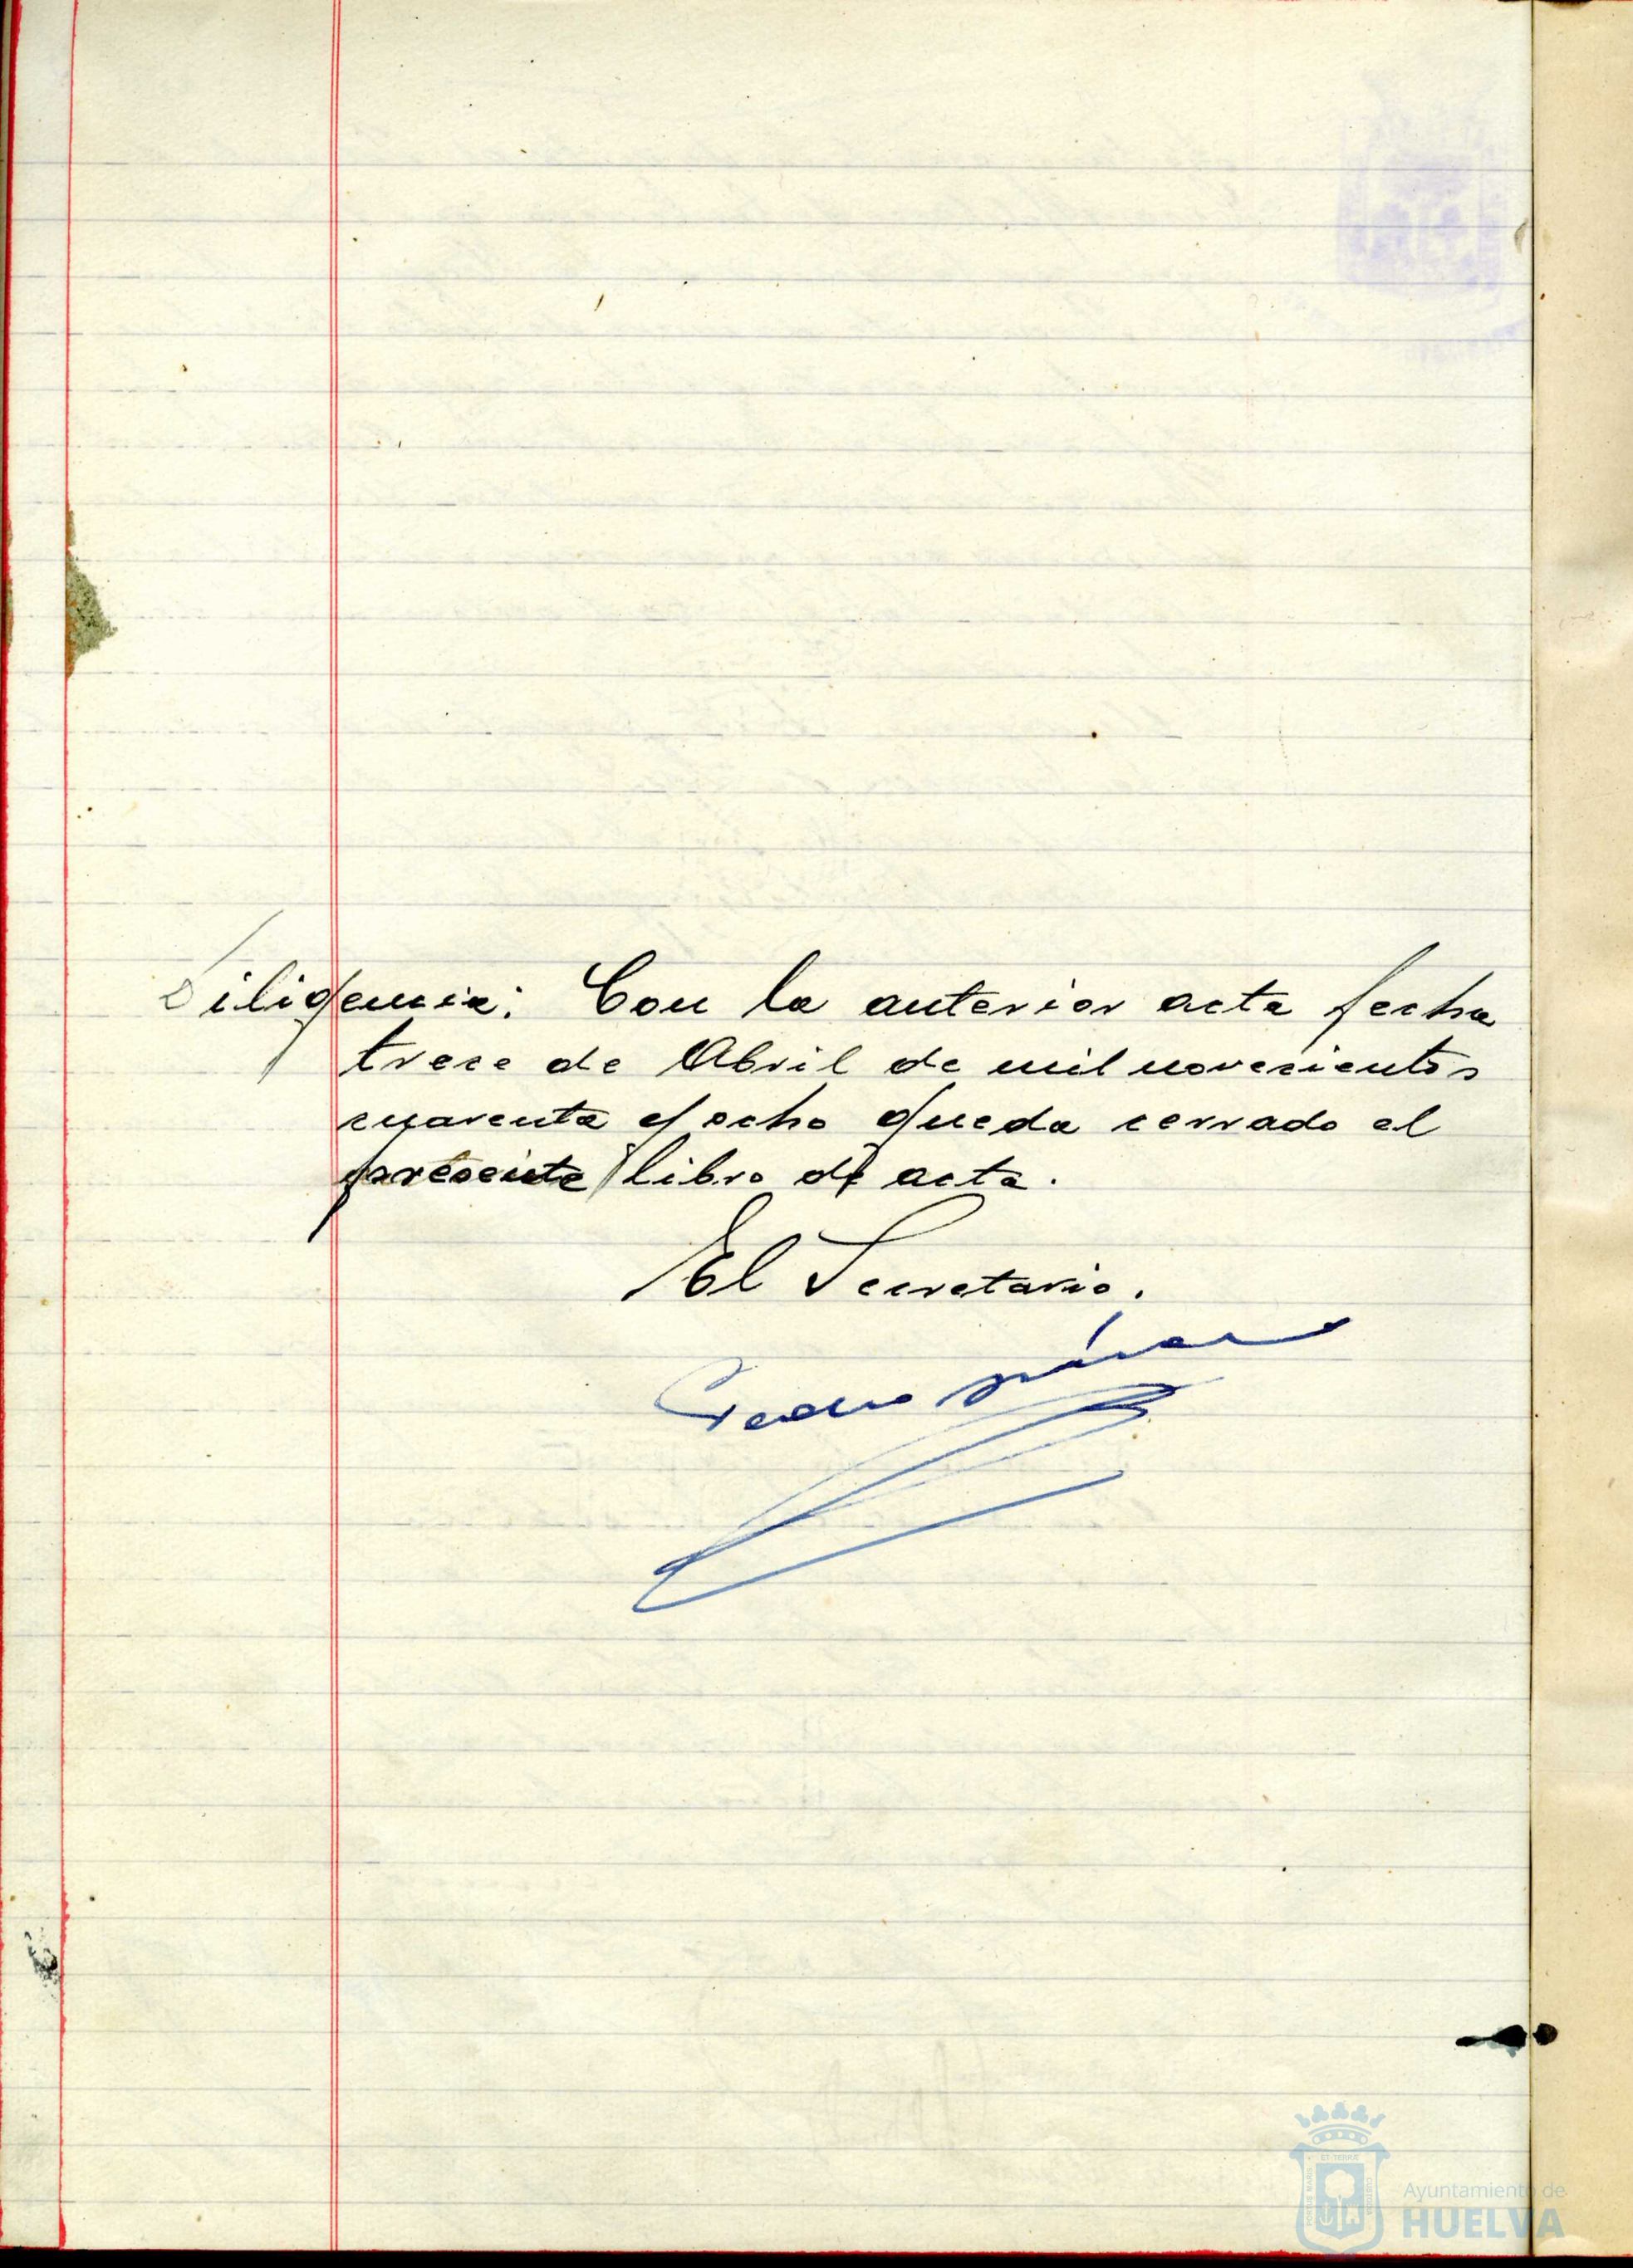 Diligencia: Con la anterior acta fecha
trece de Abril de mil novecientos
cuarenta y ocho queda cerrado el
presente libro de acta.
El Secretario.
Pedro
Ayuntamiento de
HUELVA